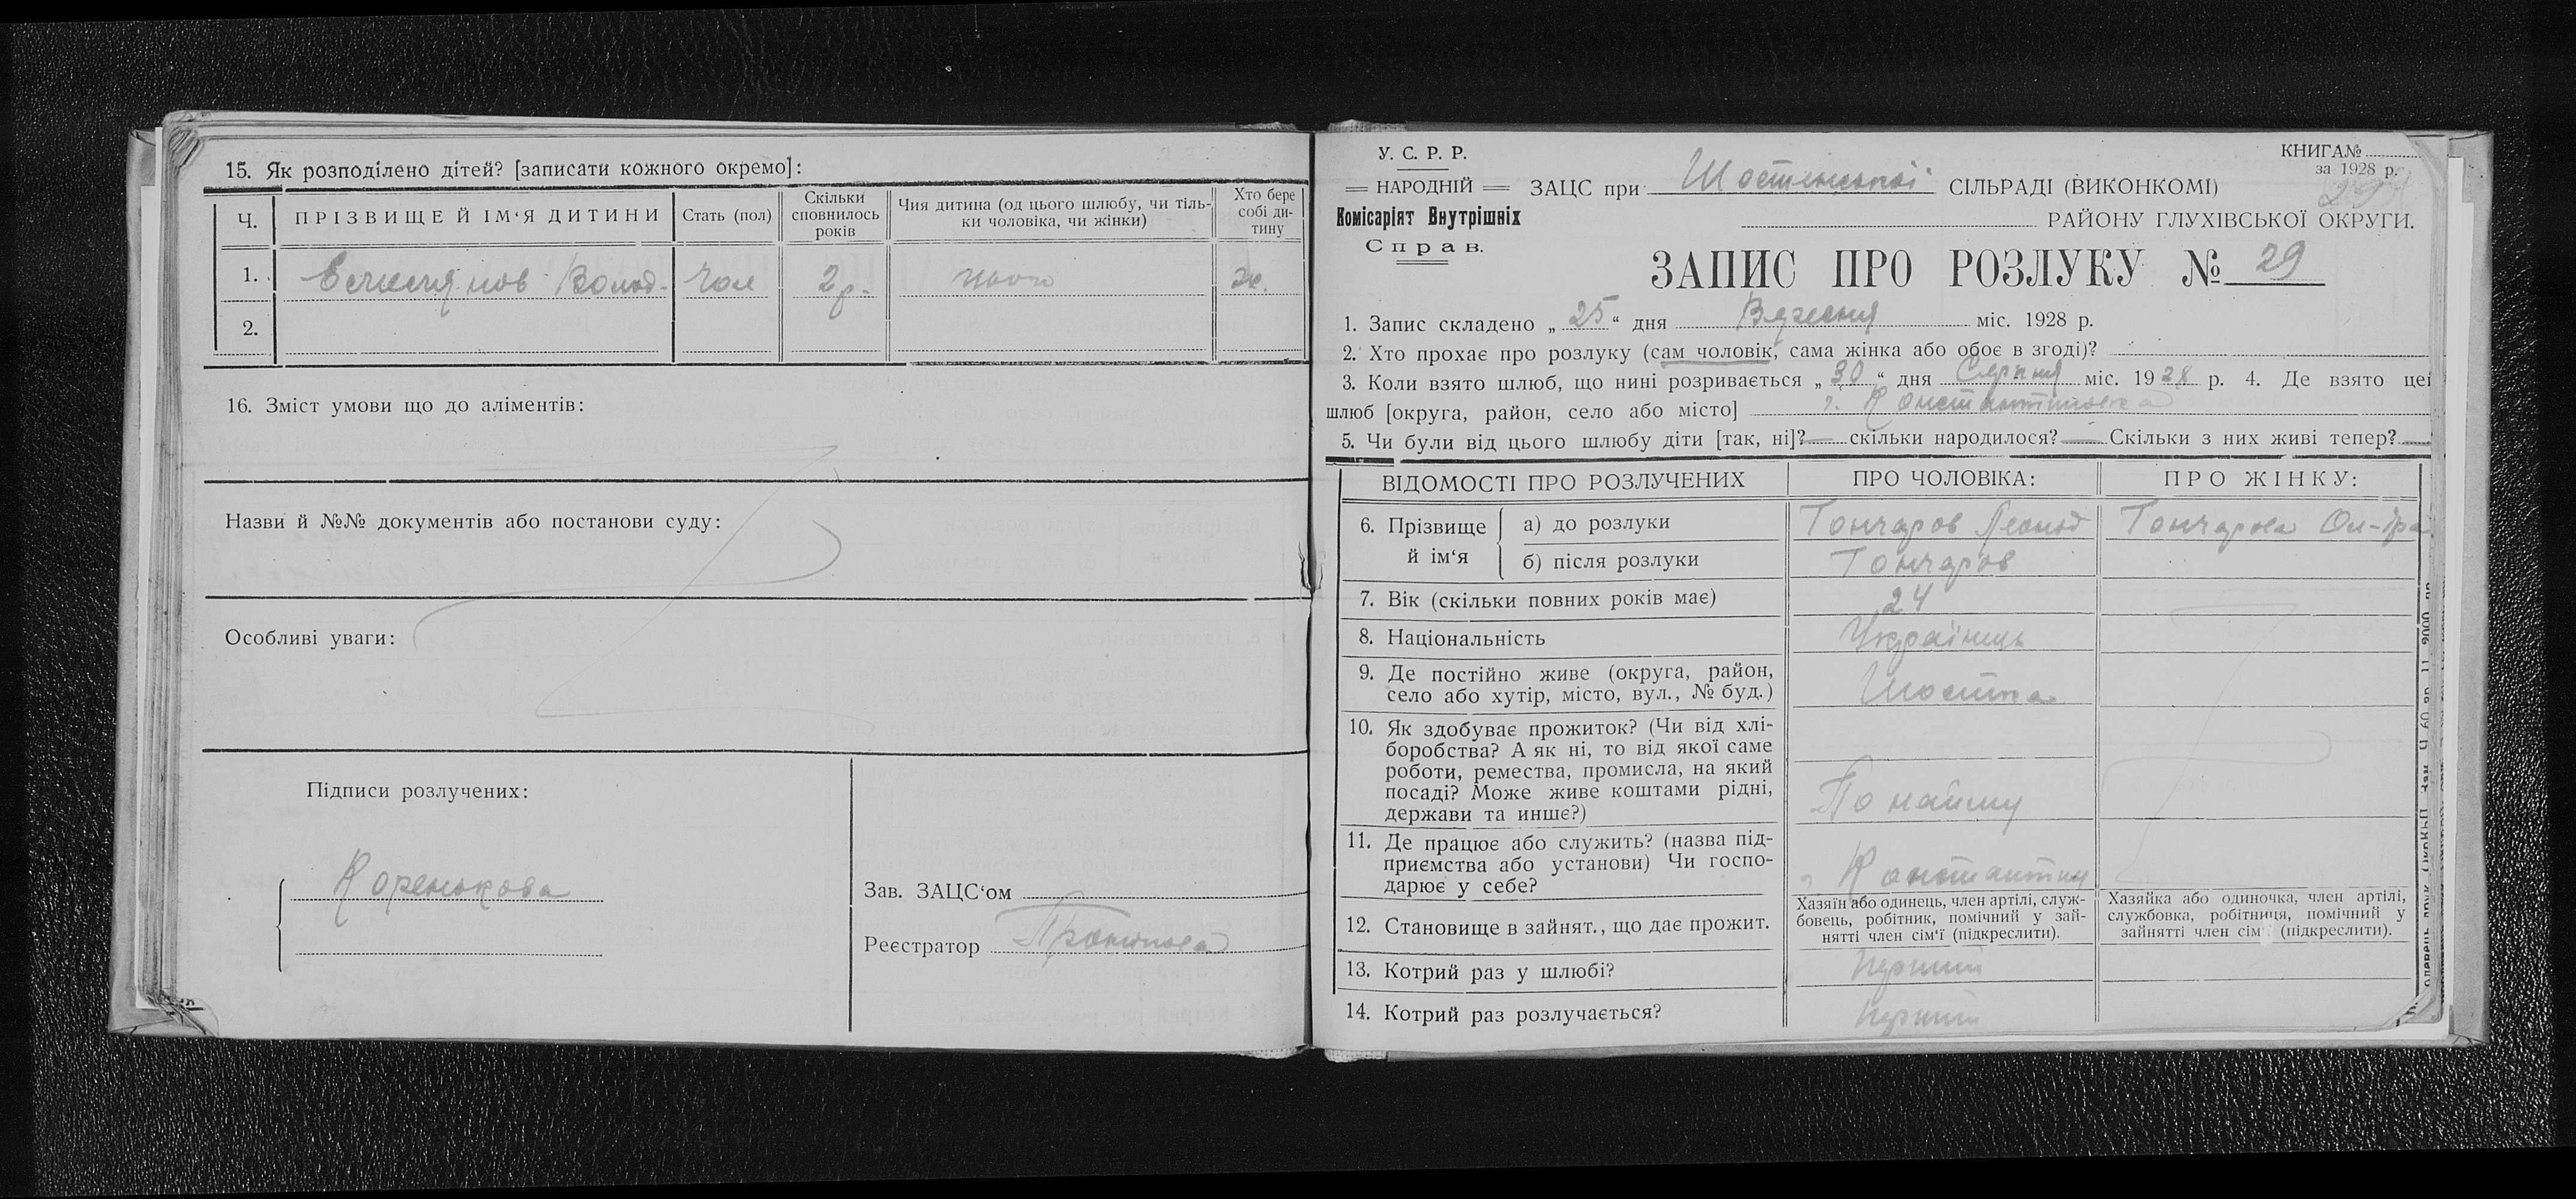 15. Як розподілено дітей? [записати кожного окремо]:
Ч. ПРІЗВИЩЕ Й ІМ‘Я ДИТИНИ Стать (пол) Скільки сповнилось років Чия дитина (од цього шлюбу, чи тіль-ки чоловіка, чи жінки) Хто бере собі ди-тину
1. Волод. чол 2 р. ж.
2.
16. Зміст умови що до аліментів:
Назви й №№ документів або постанови суду:
Особливі уваги:
Підписи розлучених:
Коренькова
Зав. ЗАЦС‘ом
Реєстратор
У. С. Р. Р.
НАРОДНІЙ
Комісаріят Внутрішніх
Справ.
КНИГА№
за 1928 р.
ЗАЦС при Шостенської СІЛЬРАДІ (ВИКОНКОМІ)
РАЙОНУ ГЛУХІВСЬКОЇ ОКРУГИ.
ЗАПИС ПРО РОЗЛУКУ № 29
1. Запис складено „25“ дня Вересня міс. 1928 р.
2. Хто прохає про розлуку (сам чоловік, сама жінка або обоє в згоді)?
3. Коли взято шлюб, що нині розривається „30“ дня Серпня міс. 1928 р. 4. Де взято цей
шлюб [округа, район, село або місто] г. Константиновка
5. Чи були від цього шлюбу діти [так, ні]? — скільки народилося? — Скільки з них живі тепер? —
ВІДОМОСТІ ПРО РОЗЛУЧЕНИХ ПРО ЧОЛОВІКА: ПРО ЖІНКУ:
6. Прізвище й ім‘я а) до розлуки Гончаров Леонід Гончарова Ол-дра
б) після розлуки Гончаров
7. Вік (скільки повних років має) 24
8. Національність Українець
9. Де постійно живе (округа, район,
село або хутір, місто, вул., № буд.) Шостка
10. Як здобуває прожиток? (Чи від хлі-
боробства? А як ні, то від якої саме
роботи, ремества, промисла, на який
посаді? Може живе коштами рідні,
держави та инше?) По найму
11. Де працює або служить? (назва під-
приємства або установи) Чи госпо-
дарює у себе? г. Константин
12. Становище в зайнят., що дає прожит.
Хазяїн або одинець, член артілі, служ-
бовець, робітник, помічний у зай-
нятті член сім‘ї (підкреслити).
Хазяйка або одиночка, член артілі,
службовка, робітниця, помічний у
зайнятті член сім‘ї (підкреслити).
13. Котрий раз у шлюбі? перший
14. Котрий раз розлучається? перший